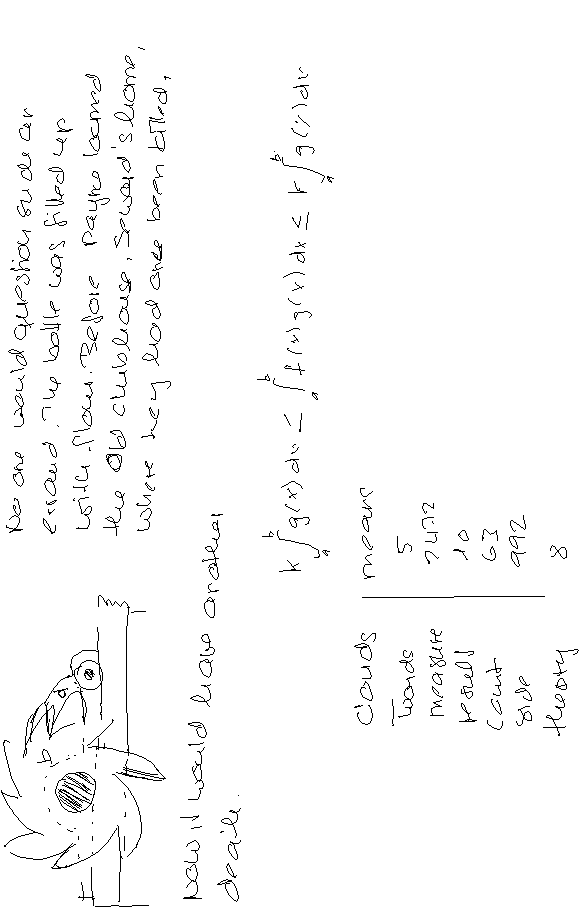 No one would question such an
errand. The bottle was filled up
with flour. Before Payne burned
the old clubhouse, Seward's home,
where they had once been billed,
Now it would have another
decile.
k ∫_a^b g(x) dx ≤ ∫_a^b f(x) g(x) dx ≤ k ∫_a^b g(x) dx
clouds means
words 5
measure 7472
result 10
count 63
side 992
theory 8